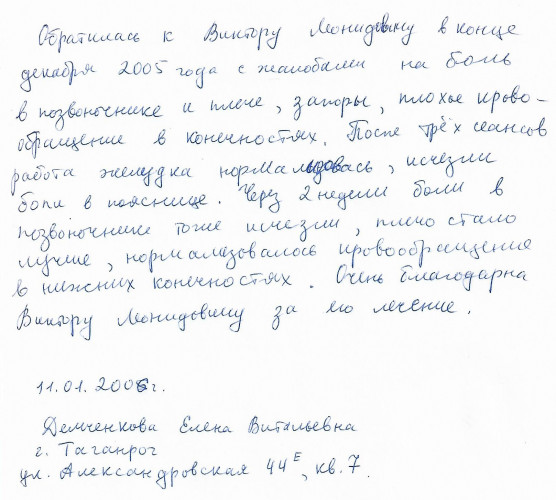 Обратилась к Виктору Леонидовичу в конце
декабря 2005 года с жалобами на боль
в позвоночнике и плече, запоры, плохое крово-
обращение в конечностях. После трёх сеансов
работа желудка нормализовалась, исчезли
боли в пояснице. Через 2 недели боли в
позвоночнике тоже исчезли, плечо стало
лучше, нормализовалось кровообращение
в нижних конечностях. Очень благодарна
Виктору Леонидовичу за его лечение.
11.01.2006г.
Демченкова Елена Витальевна
г. Таганрог
ул. Александровская 44Е, кв. 7.